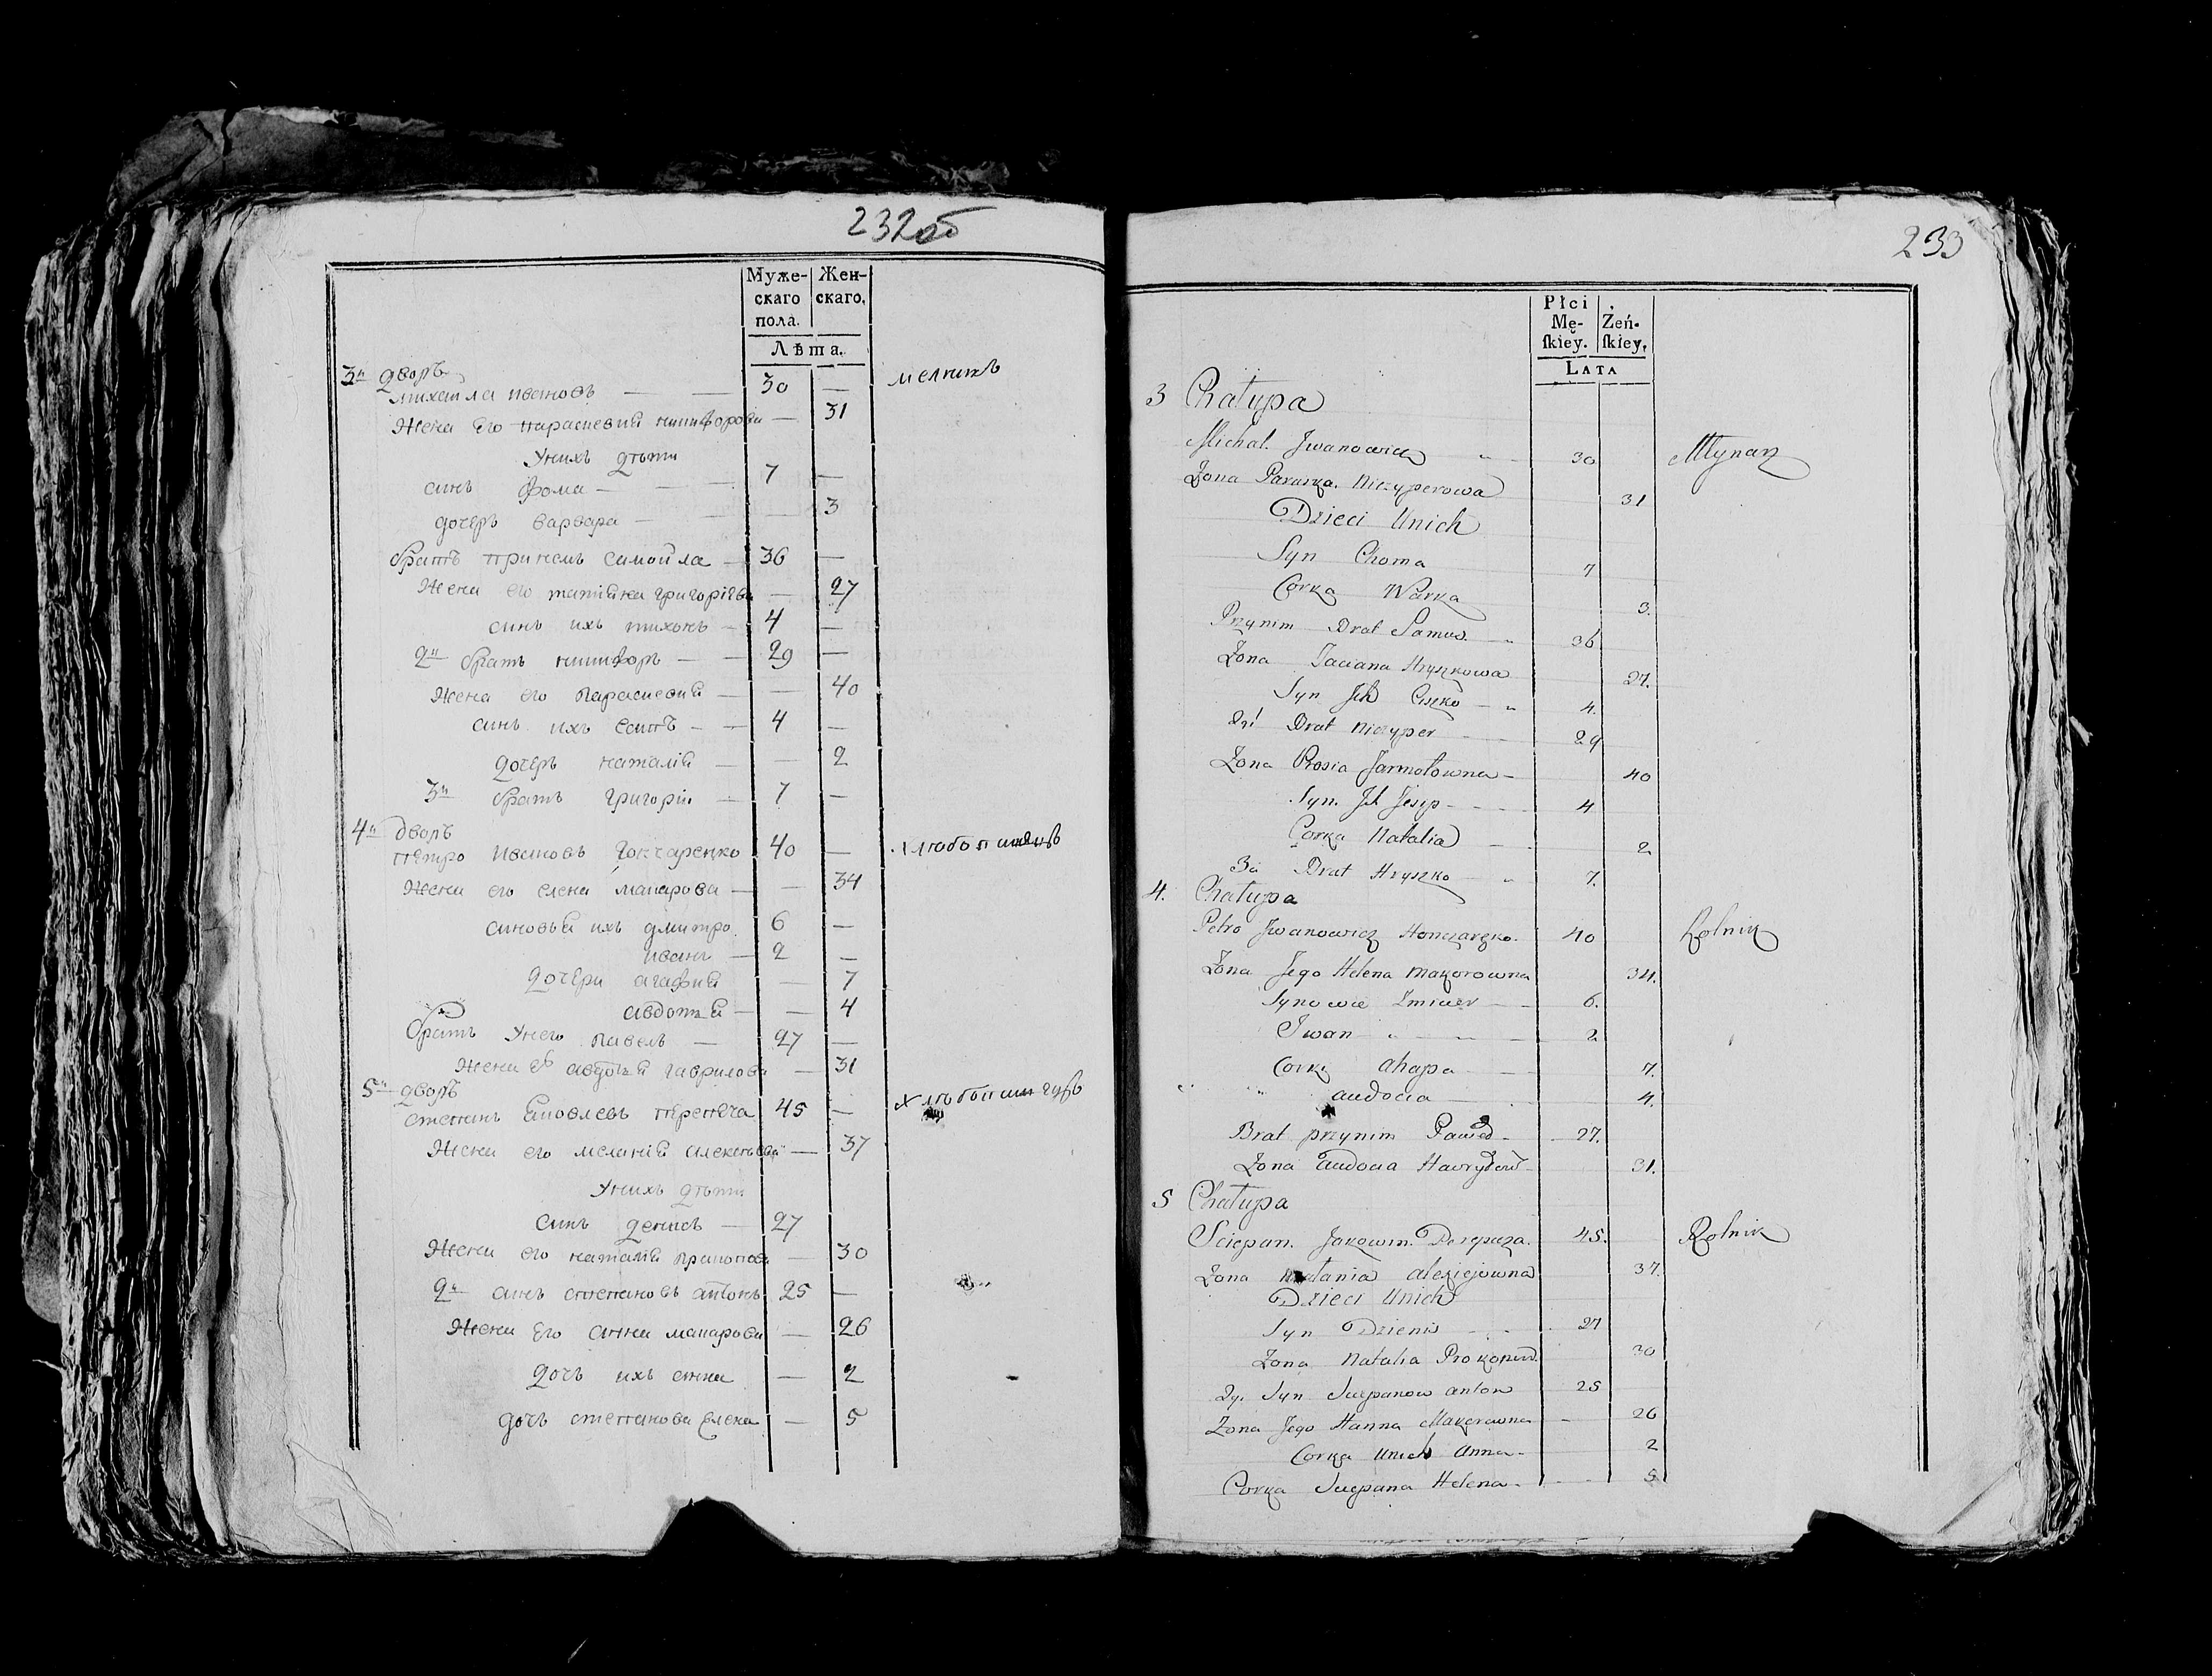 232об
Муже-
скаго
пола.
Жен-
скаго.
Лѣта.
3й дворъ
михаила ивановъ — — 30 — мелникъ
Жена Его параскевия никифорова — 31
Унихъ дѣти
синъ фома — 7 —
дочерь варвара — — 3
братъ принемъ самойла — 36 —
Жена его татіяна григоріева — 27
синъ ихъ тихонъ — 4 —
2й братъ никифоръ — — 29 —
Жена его параскевия — — 40
синъ ихъ есипъ — — 4 —
дочерь наталія — — 2
3й братъ григорій — 7 —
4й дворъ
петро ивановъ Гончаренко 40 — хлѣбопашецъ
Жена его елена макарова — — 34
синовья ихъ дмитро 6 —
иванъ — 2 —
дочери агафия — 7
авдотия — — 4
братъ Унего павелъ — 27 —
Жена его авдотия гаврилова — 31
5й дворъ
степанъ Яковлевъ перепеча 45 — хлѣбопашецъ
Жена его меланія алексѣева — 37
Унихъ дѣти
синъ денисъ — 27
Жена его наталія прокопова — 30
2й синъ степановъ антонъ 25 —
Жена Его анна макарова — 26
дочь ихъ анна — 2
дочь степанова елена — 5
233
Płci
Mę-
skiey.
Żeń-
skiey.
LATA
3 Chałupa
Michał Jwanowicz 30 Młynarz
Zona Paraska Niczyperowa 31
Dzieci Unich
Syn Choma 7
Corka Warka 3.
Przynim Brat Samus 36
Zona Taciana Hryszkowa 27.
Syn Jch Ciszko 4.
Brat Niczyper 29
Zona Prosia Jarmołowna 40
Syn Jch Jesyp 4
Corka Natalia 2
3ci Brat Hryszko 7.
4. Chałupa
Petro Jwanowicz Honczarzko. 40 Rolnik
Zona Jego Helena Makorowna 34.
Synowie Zmicer 6.
Jwan 2
Corki ahapa 7.
audocia 4.
Brat przynim Paweł 27.
Zona audocia Hawryłow 31.
5 Chałupa
Sciepan. Jakowin. Perepecza. 45. Rolnik
Zona Małania aleziejowna 37.
Dzieci Unich
Syn Dzienis 27
Zona Natalia Prokopow. 30
Syn Sciepanow anton 25
Zona Jego Hanna Makerowna 26
Corka Unich Anna 2
Corka Sciepana Helena 5